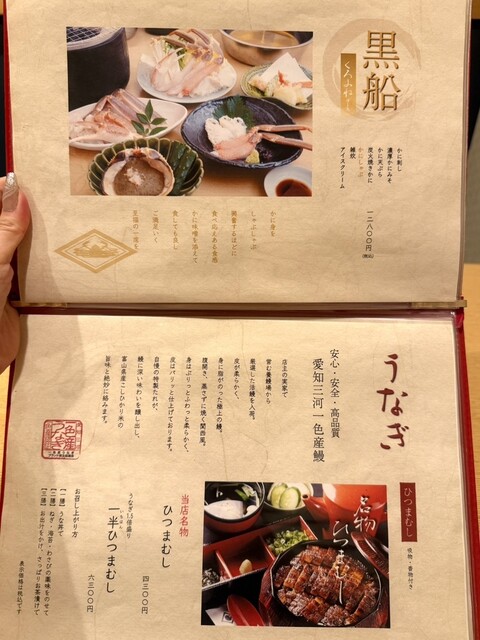 黒船
くろふね
かに刺し
濃厚かにみそ
かに天ぷら
炭火焼きかに
かにしゃぶ
雑炊
アイスクリーム
一二八〇〇円
(税込)
かに身を
しゃぶしゃぶ
興奮するほどに
食べ応えある食感
かに味噌を添えて
食しても良し
ご満足いく
至福の一席を
うなぎ
安心・安全・高品質
愛知三河一色産鰻
店主の実家で
営む養鰻場から
厳選した活鰻を入荷。
皮が柔らかく、
身に脂がのった極上の鰻。
腹開き、蒸さずに焼く関西風。
身はぷりっとふわっと柔らかく、
皮はパリッと仕上げております。
自慢の特製たれが、
鰻に深い味わいを醸し出し、
富山県産こしひかり米の
旨味と絶妙に絡みます。
一色産
ひつまむし
吸物・香物付き
名物
ひつまむし
当店名物
ひつまむし
四三〇〇円
うなぎ1.5倍盛り
一半ひつまむし
いちはん
六三〇〇円
お召し上がり方
【一膳】うな丼で
【二膳】ねぎ・海苔・わさびの薬味をのせて
【三膳】お出汁をかけ、さっぱりお茶漬けで
表示価格は税込です